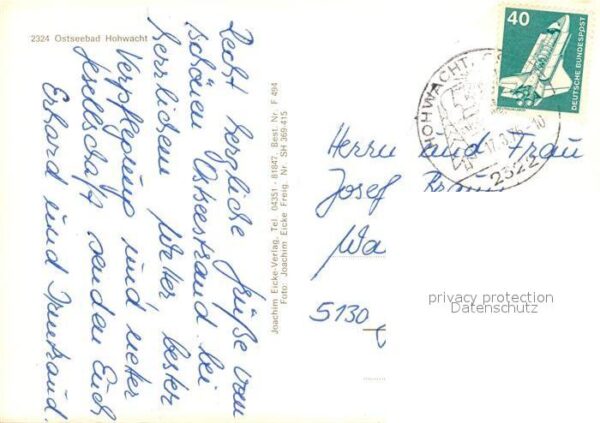 2324 Ostseebad Hohwacht
Recht herzliche Grüße vom
schönen Ostseestrand bei
herrlichem Wetter, bester
Verpflegung und netter
Gesellschaft senden Euch
Erhard und Irmtraud.
Joachim Eicke-Verlag, Tel. 04351 - 81847, Best. Nr. F 494
Foto: Joachim Eicke Freig. Nr. SH 369-415
40
DEUTSCHE BUNDESPOST
HOHWACHT
2322
Herrn und Frau
Josef
Wa
5130
privacy protection
Datenschutz